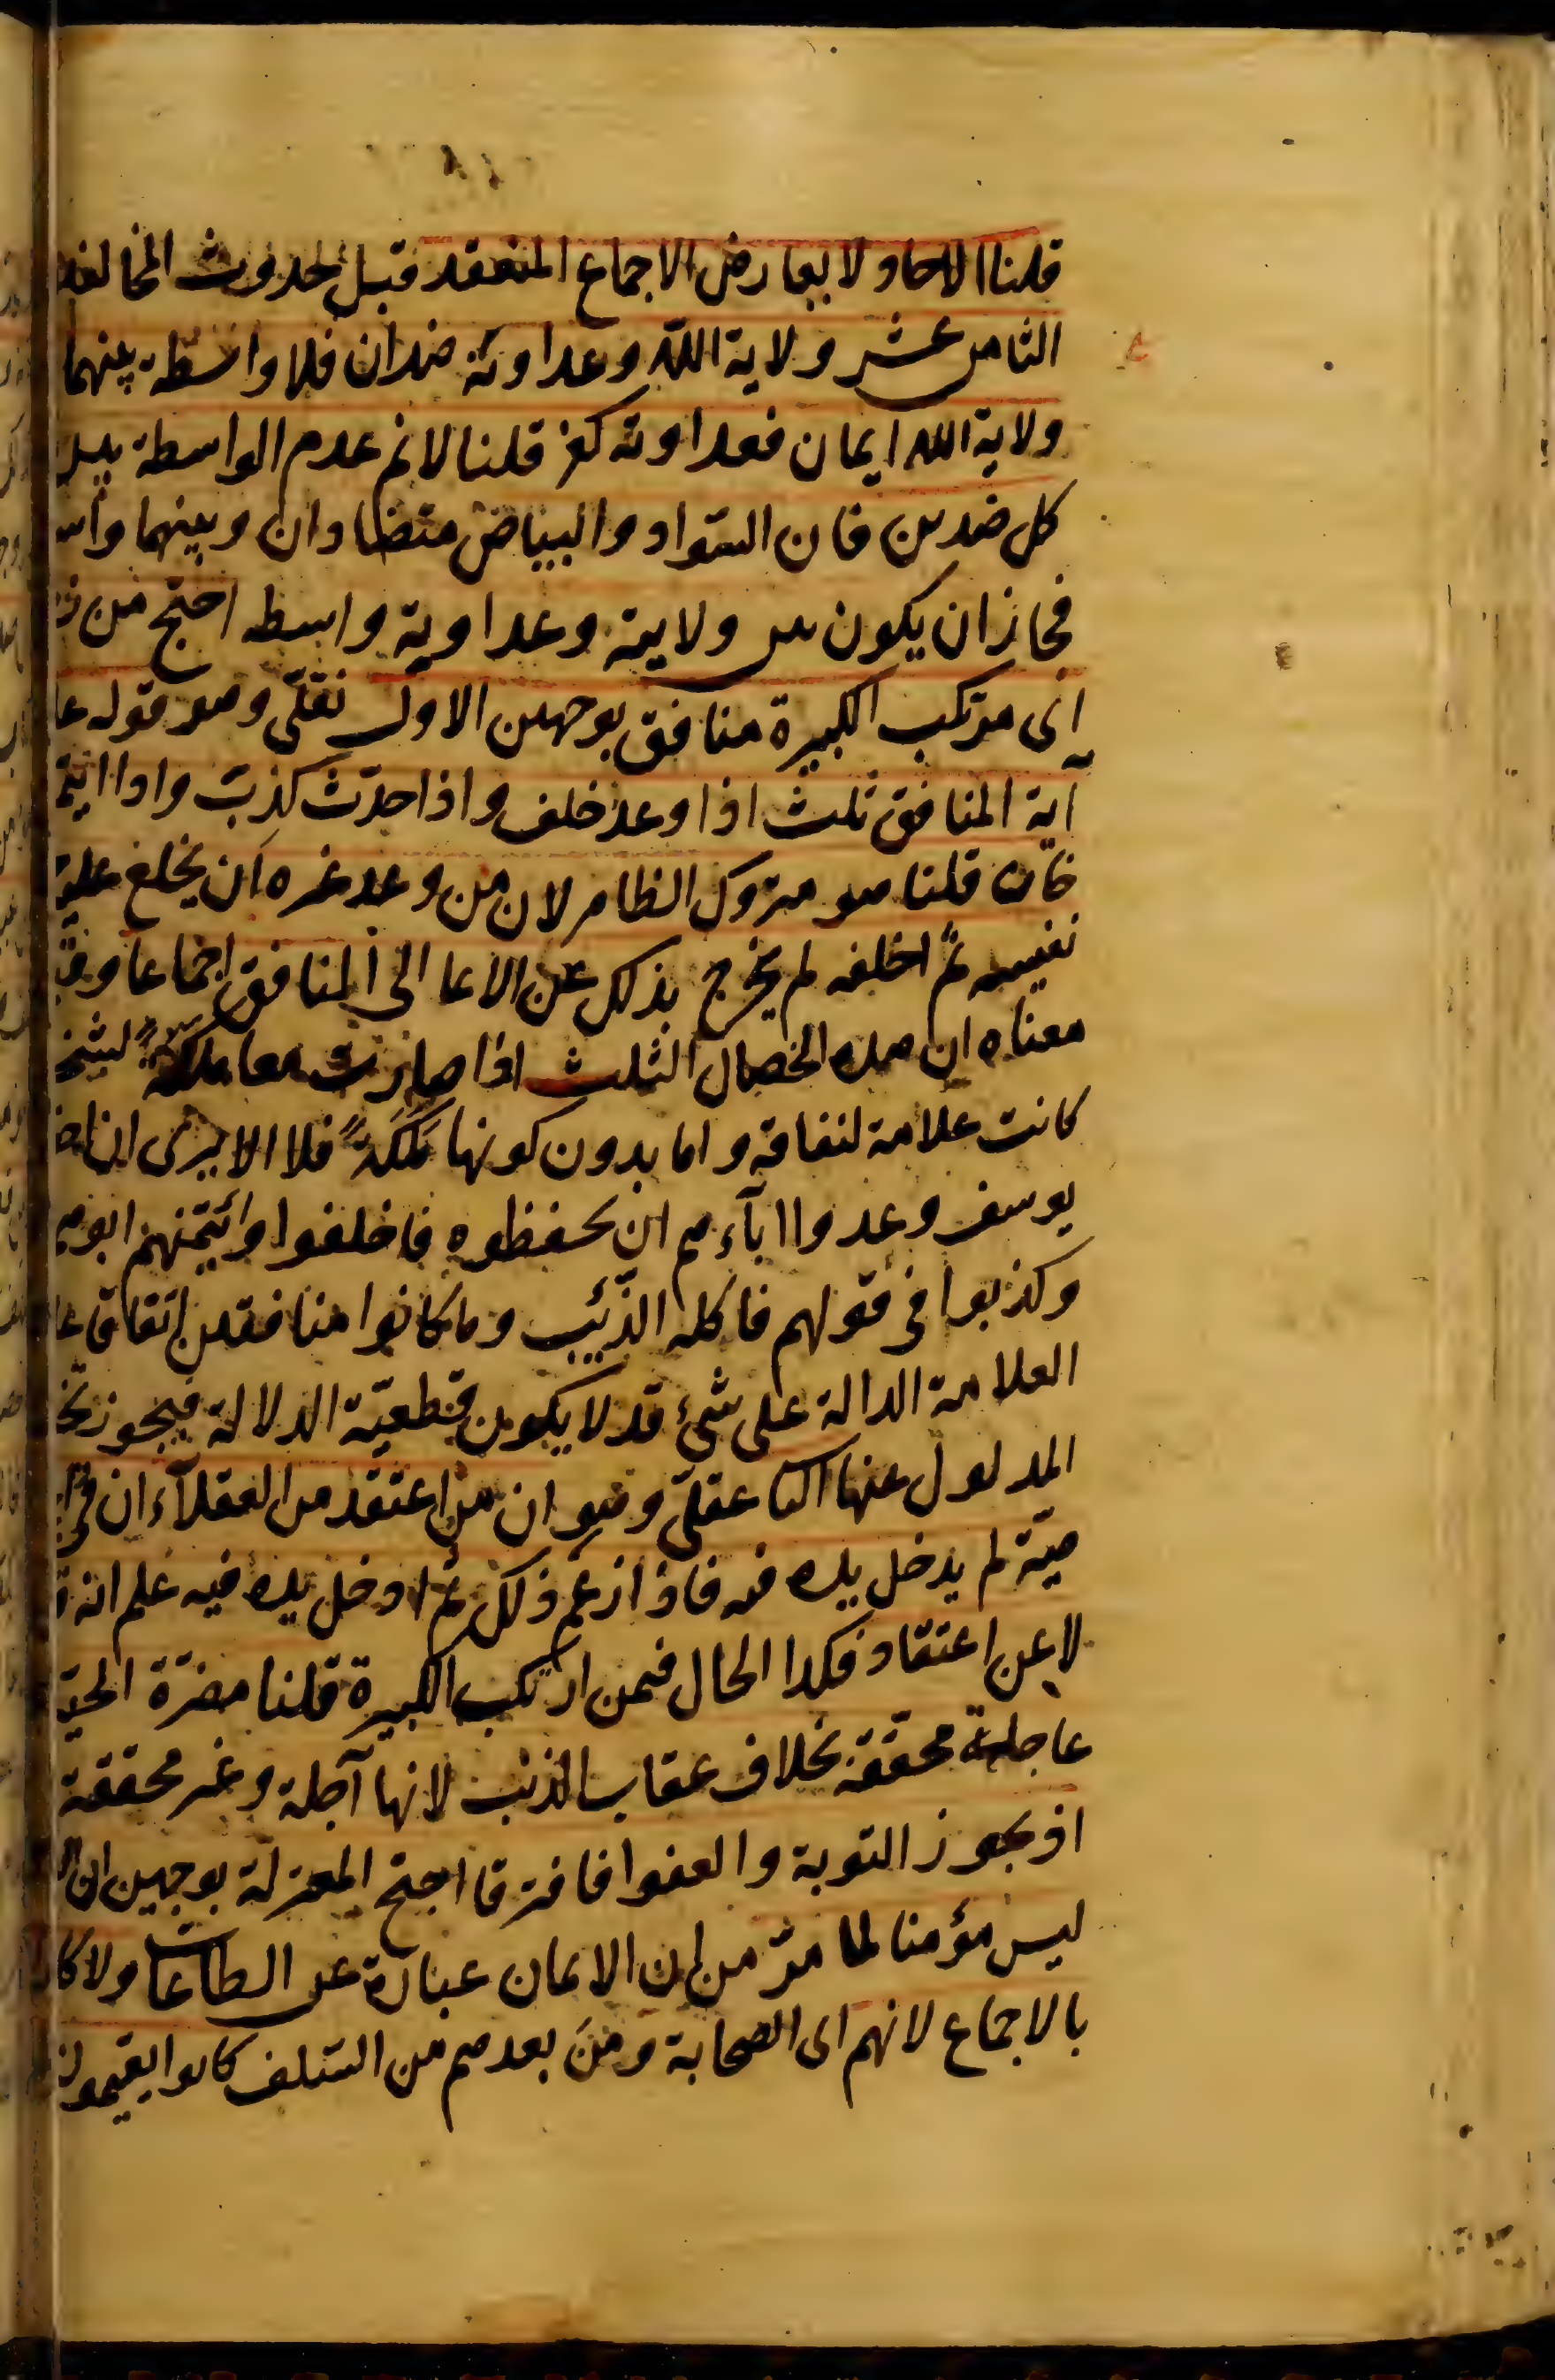 قلنا الاحاد لا يعارض الاجماع المنعقد قبل حدوث المخالفة
الثامن عشر ولاية الله وعداوته ضدان فلا واسطة بينهما
ولاية الله ايمان فعداوته كفر قلنا لانم عدم الواسطة بين
كل ضدين فان السواد والبياض متضادان وبينهما
فجاز ان يكون بين ولايته وعداوته واسطه احتج من
اى مرتكب الكبيرة منافق بوجهين الاول نقلى وهو قوله
آية المنافق ثلث اذا وعد خلف واذا حدث كذب واذا ائتمن
خان قلنا هو متروك الظاهر لان من وعد غيره ان يخلع عليه
نفيسه ثم اخلفه لم يخرج بذلك عن الايما الى المنافق اجماعا
معناه ان هذه الخصال الثلث اذا صارت معا ملكة لشخص
كانت علامة لنفاقه واما بدون كونها ملكة فلا الا يرى ان
يوسف وعدوا اباءهم ان يحفظوه فاخلفوا وائتمنهم ابوهم
وكذبوا فى قولهم فاكله الذئب وما كانوا منافقين اتفاقا
العلامة الدالة على شئ قد لا يكون قطعية الدلالة فيجوز
المدلول عنها الثا عقلى وهو ان من اعتقد من العقلآء ان فى
حية لم يدخل يده فيه فاذا زعم ذلك ثم ادخل يده فيه علم انه
لا عن اعتقاد فكذا الحال فيمن ارتكب الكبيرة قلنا مضرة الحية
عاجلة محققة بخلاف عقاب الذنب لانها آجلة وغير محققة
اذ يجوز التوبة والعفو فافترقا احتج المعتزلة بوجهين
ليس مؤمنا لما مر من ان الايمان عبارة عن الطاعات ولا
بالاجماع لانهم اى الصحابة ومن بعدهم من السلف كانوا يقيمون